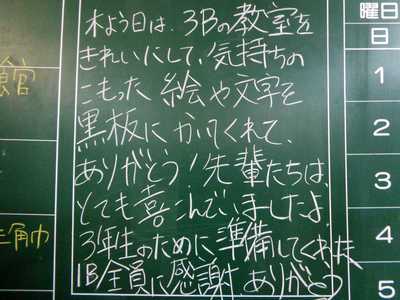 木よう日は、3Bの教室を
きれいにして、気持ちの
こもった絵や文字を
黒板にかいてくれて、
ありがとう！先輩たちは、
とても喜こんでいましたよ。
3年生のために準備してくれた
1B全員に感謝。ありがとう
館
三角巾
曜日
日
1
2
3
4
5